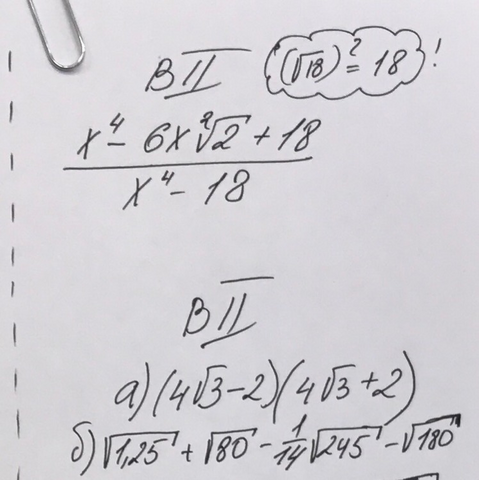 В II (√18)² = 18 !
x⁴ - 6x²√2 + 18
x⁴ - 18
В II
а) (4√3 - 2)(4√3 + 2)
б) √1,25 + √80 - 1/14 √245 - √180